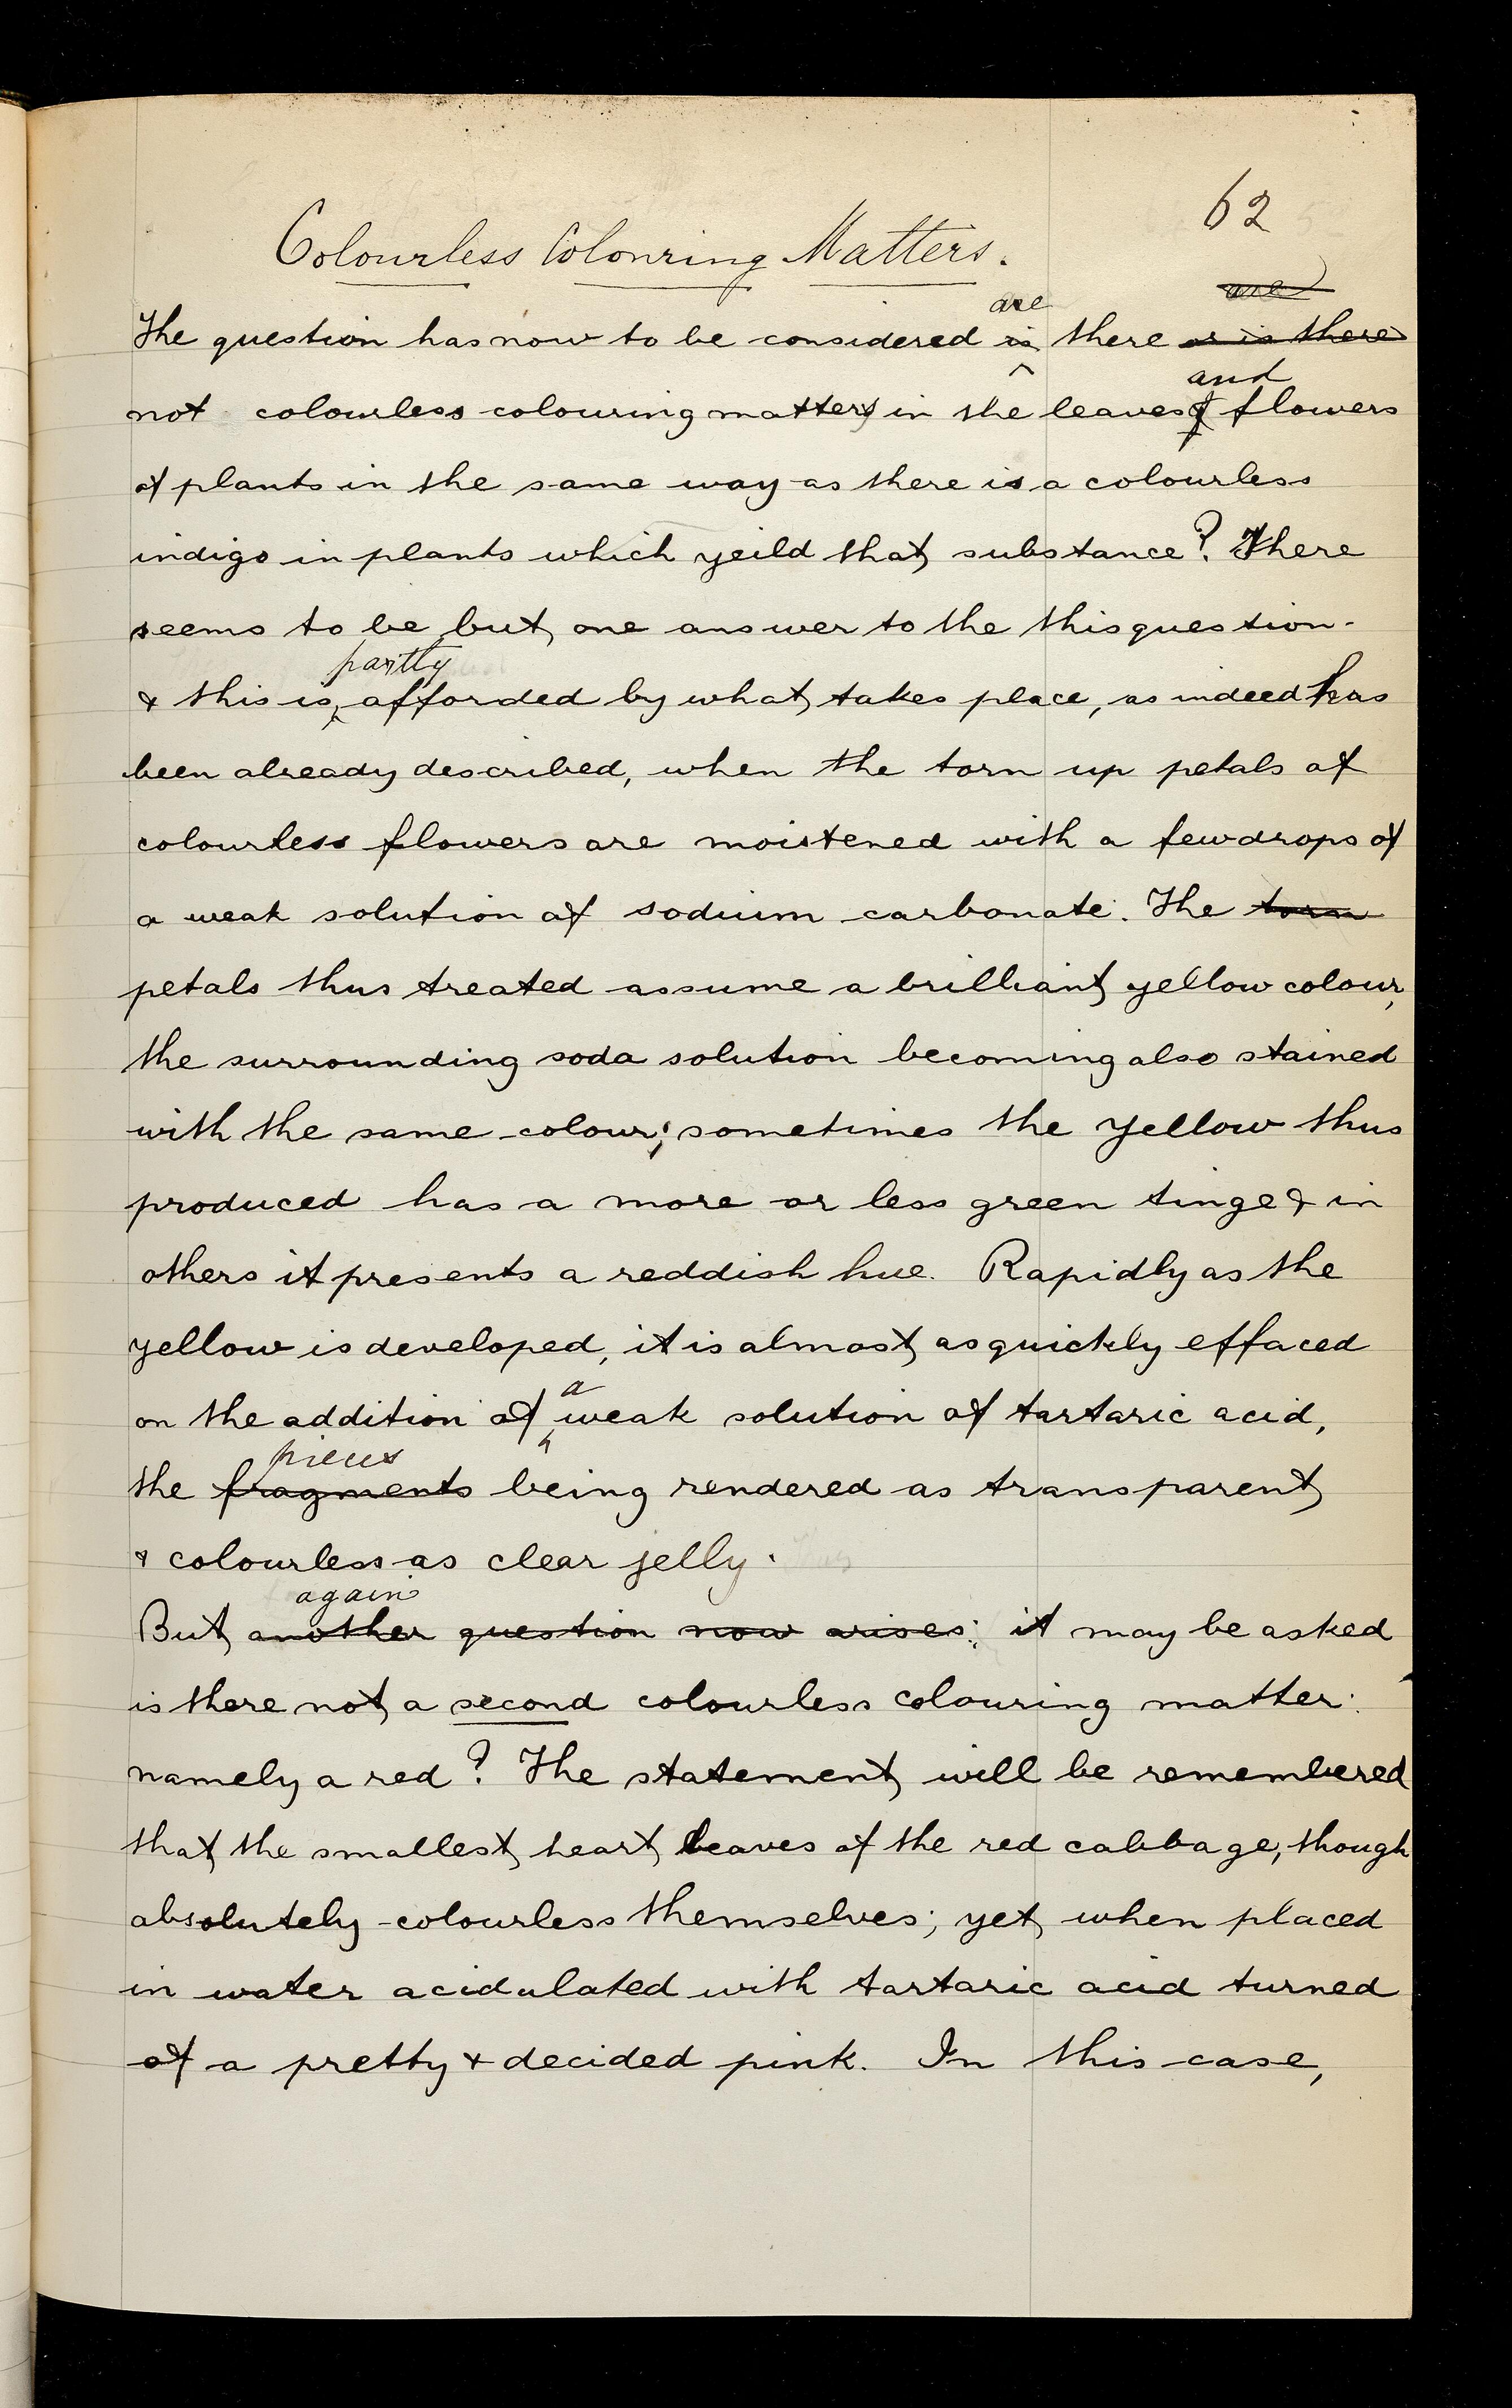 62
Colourless Colouring Matters.
are
are
The question has now to be considered is there or is there
and
not colourless colouring matters in the leaves & flowers
of plants in the same way as there is a colourless
indigo in plants which yeild that substance? There
seems to be but one answer to the this question.
partly
& this is afforded by what takes place, as indeed has
been already described, when the torn up petals of
colourless flowers are moistened with a few drops of
a weak solution of sodium carbonate. The torn
petals thus treated assume a brilliant yellow colour,
the surrounding soda solution becoming also stained
with the same colour; sometimes the yellow thus
produced has a more or less green tinge & in
others it presents a reddish hue. Rapidly as the
yellow is developed, it is almost as quickly effaced
a
on the addition of weak solution of tartaric acid,
pieces
the fragments being rendered as transparent
& colourless as clear jelly.
again
But another question now arises; it may be asked
is there not a second colourless colouring matter:
namely a red? The statement will be remembered
that the smallest heart leaves of the red cabbage, though
absolutely colourless themselves; yet when placed
in water acidulated with tartaric acid turned
of a pretty & decided pink. In this case,